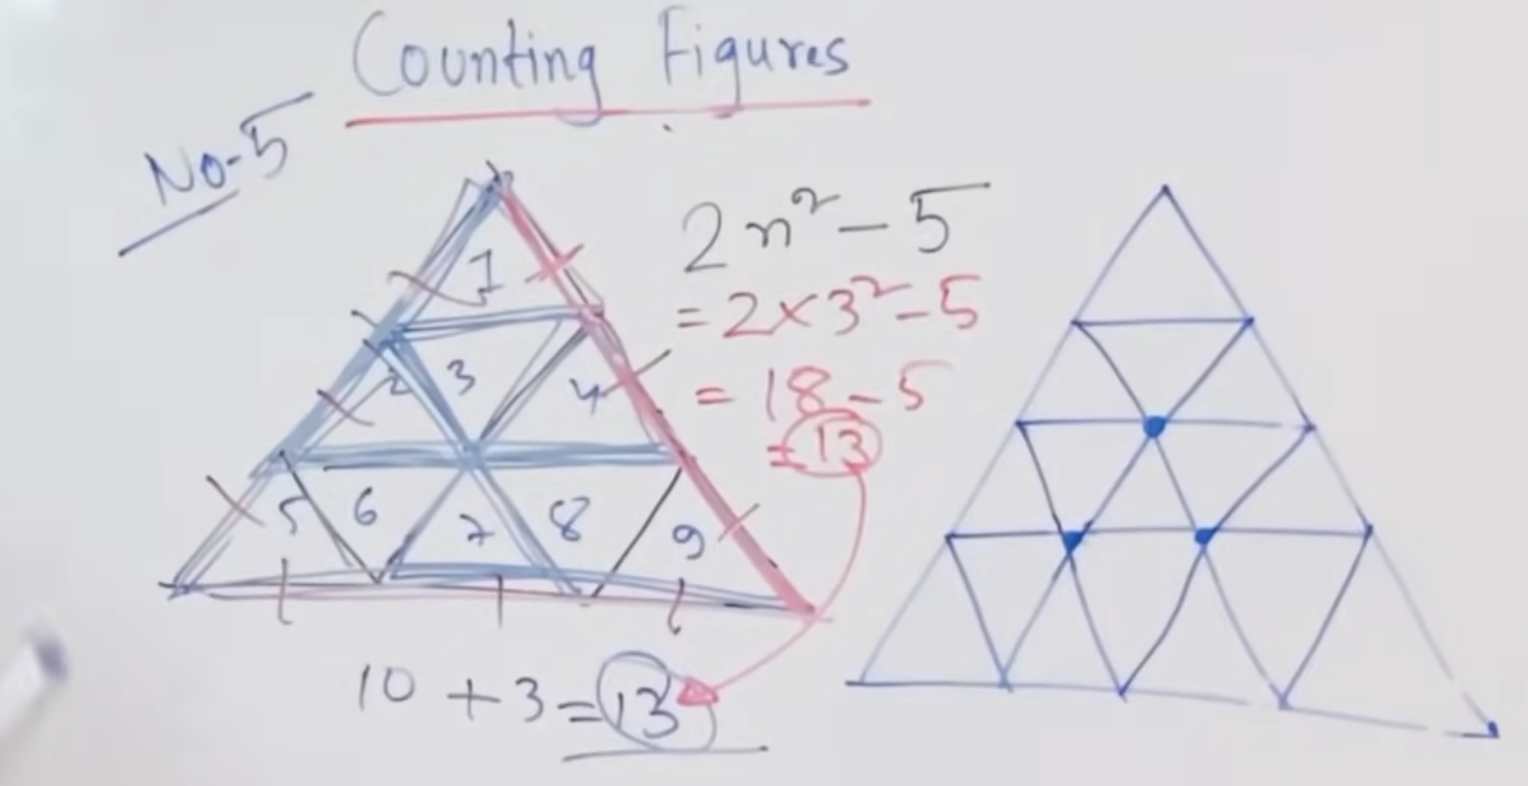 Counting Figures
No-5
1
2 3 4
5 6 7 8 9
2n² - 5
= 2×3² - 5
= 18 - 5
= 13
10 + 3 = 13